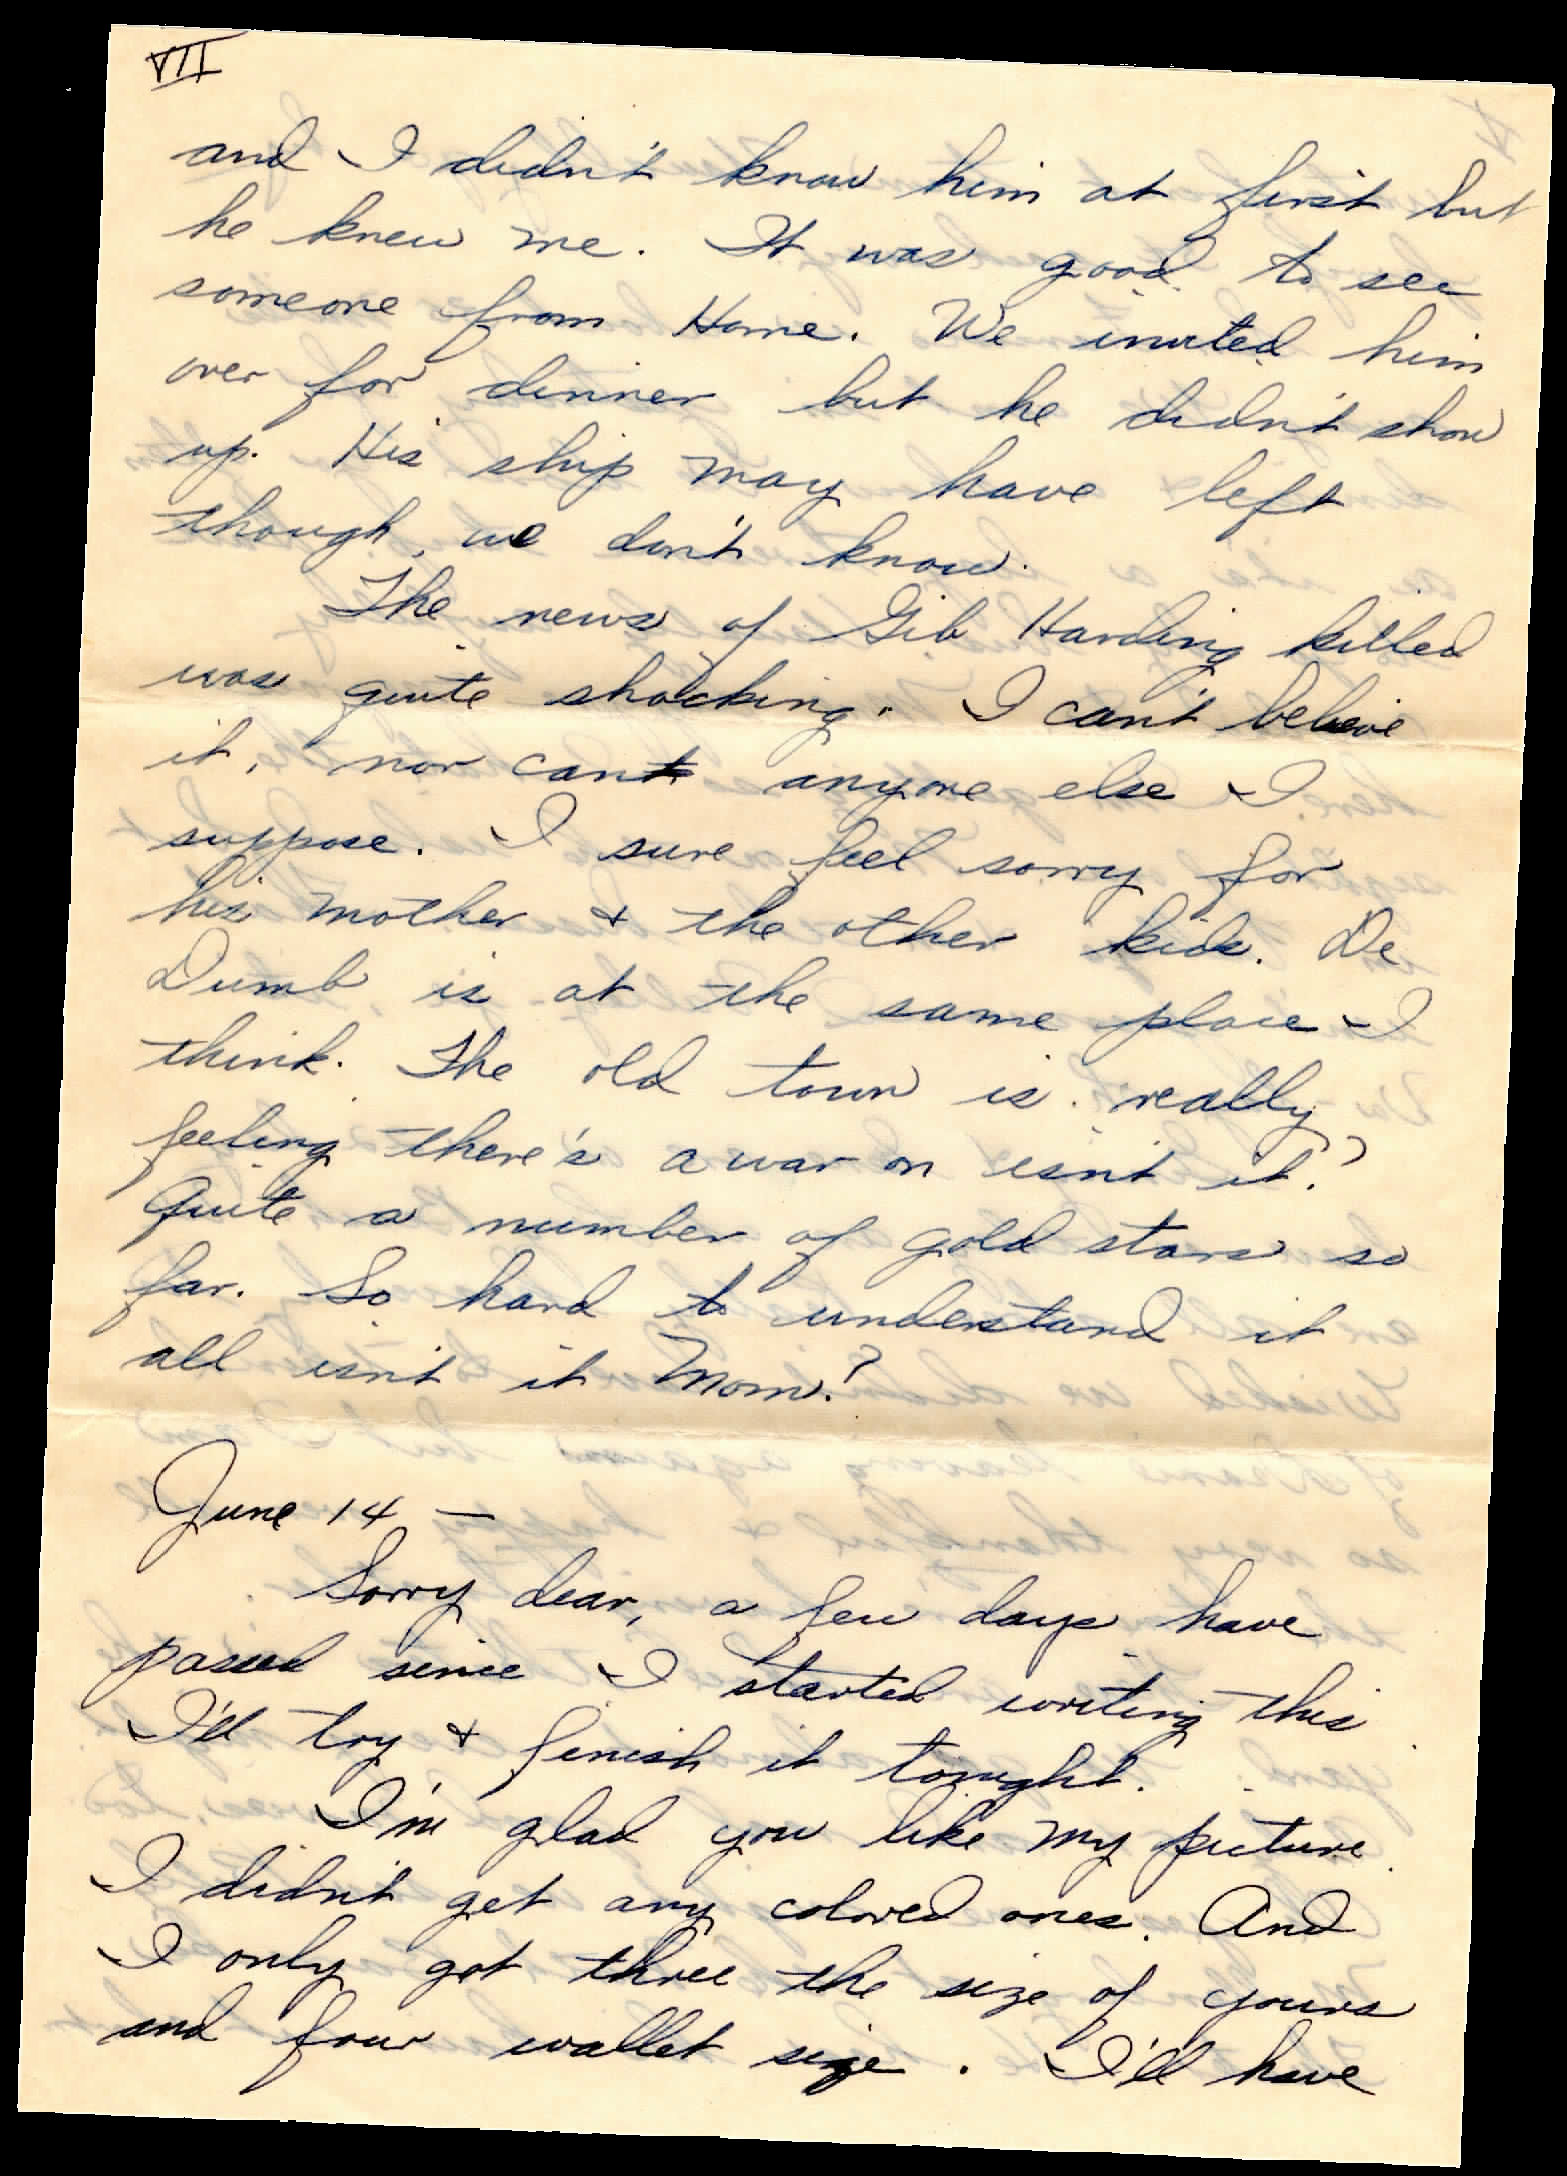 VII
and I didn't know him at first but
he knew me. It was good to see
someone from Home. We invited him
over for dinner but he didn't show
up. His ship may have left
though, we don't know.
The news of Gib Harding killed
was quite shocking. I can't believe
it, nor can anyone else I
suppose. I sure feel sorry for
his mother & the other kids. De
Dumb is at the same place I
think. The old town is really
feeling there's a war on isn't it?
Quite a number of gold stars so
far. So hard to understand it
all isn't it Mom?
June 14 —
Sorry dear, a few days have
passed since I started writing this
I'll try & finish it tonight.
I'm glad you like my picture.
I didn't get any colored ones. And
I only got three the size of yours
and four wallet size. I'll have